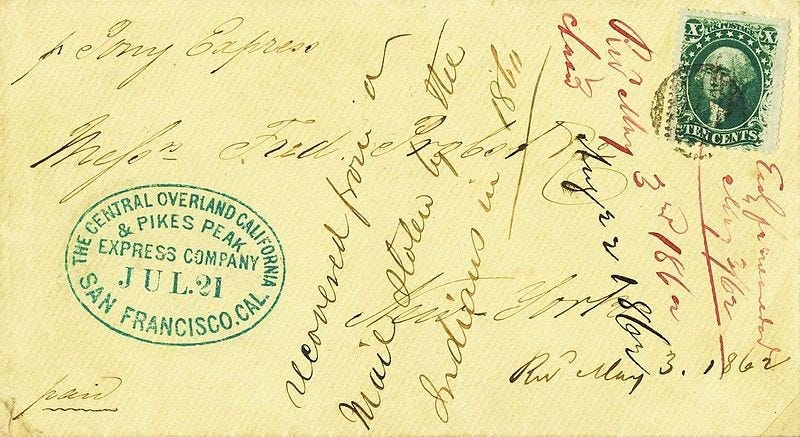 p Pony Express
Messrs Fred. Probst & Co
New York
paid
THE CENTRAL OVERLAND CALIFORNIA
& PIKES PEAK
EXPRESS COMPANY
JUL. 21
SAN FRANCISCO. CAL.
recovered from a
Mail stolen by the
Indians in 1860
Recd May 3rd 1862
ansd
Aug 22 1862
Recd May 3. 1862
May 3/62
X X
U.S. POSTAGE
TEN CENTS